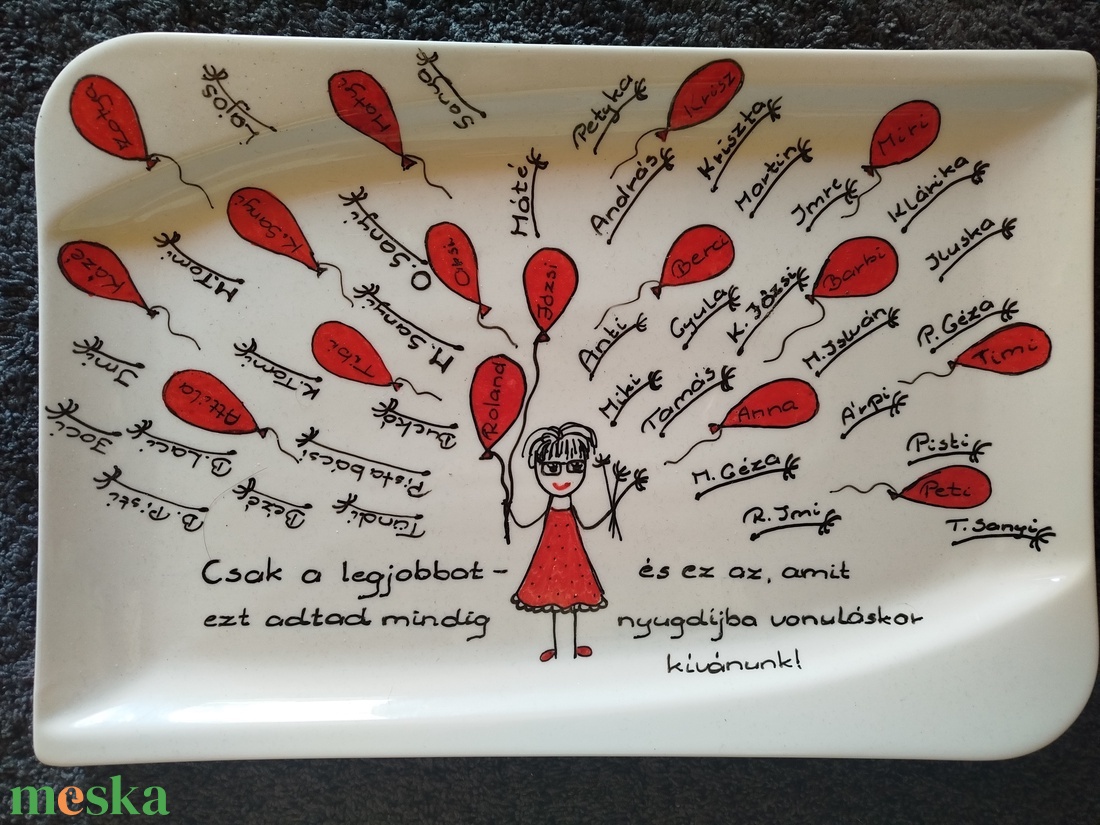 Zotya
Lajos
Matyi
Sanya
Petyka
Krisz
Kriszta
Miri
Máté
András
Martin
Imre
Klárika
K. Sanyi
O. Sanyi
Orsi
Józsi
Berci
Barbi
Iluska
Kázé
M. Tomi
M. Sanyi
Anti
Gyula
K. Józsi
M. István
P. Géza
Timi
Imi
K. Tomi
Tibi
Roland
Miki
Tamás
Anna
Árpi
Joci
B. Laci
Attila
Buckó
Pista bácsi
M. Géza
Pisti
B. Pisti
Bezé
Tündi
R. Imi
Peti
T. Sanyi
Csak a legjobbat - és ez az, amit
ezt adtad mindig nyugdíjba vonuláskor
kívánunk!
meska